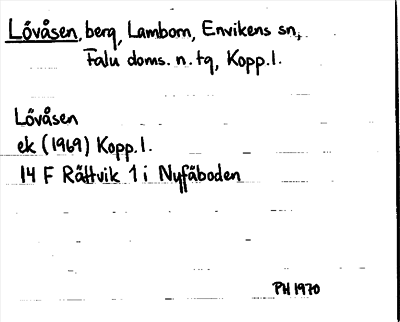 Lövåsen, berg, Lamborn, Envikens sn,
Falu doms. n. tg, Kopp.l.
Lövåsen
ek (1969) Kopp.l.
14 F Rättvik 1 i Nyfäboden
PH 1970